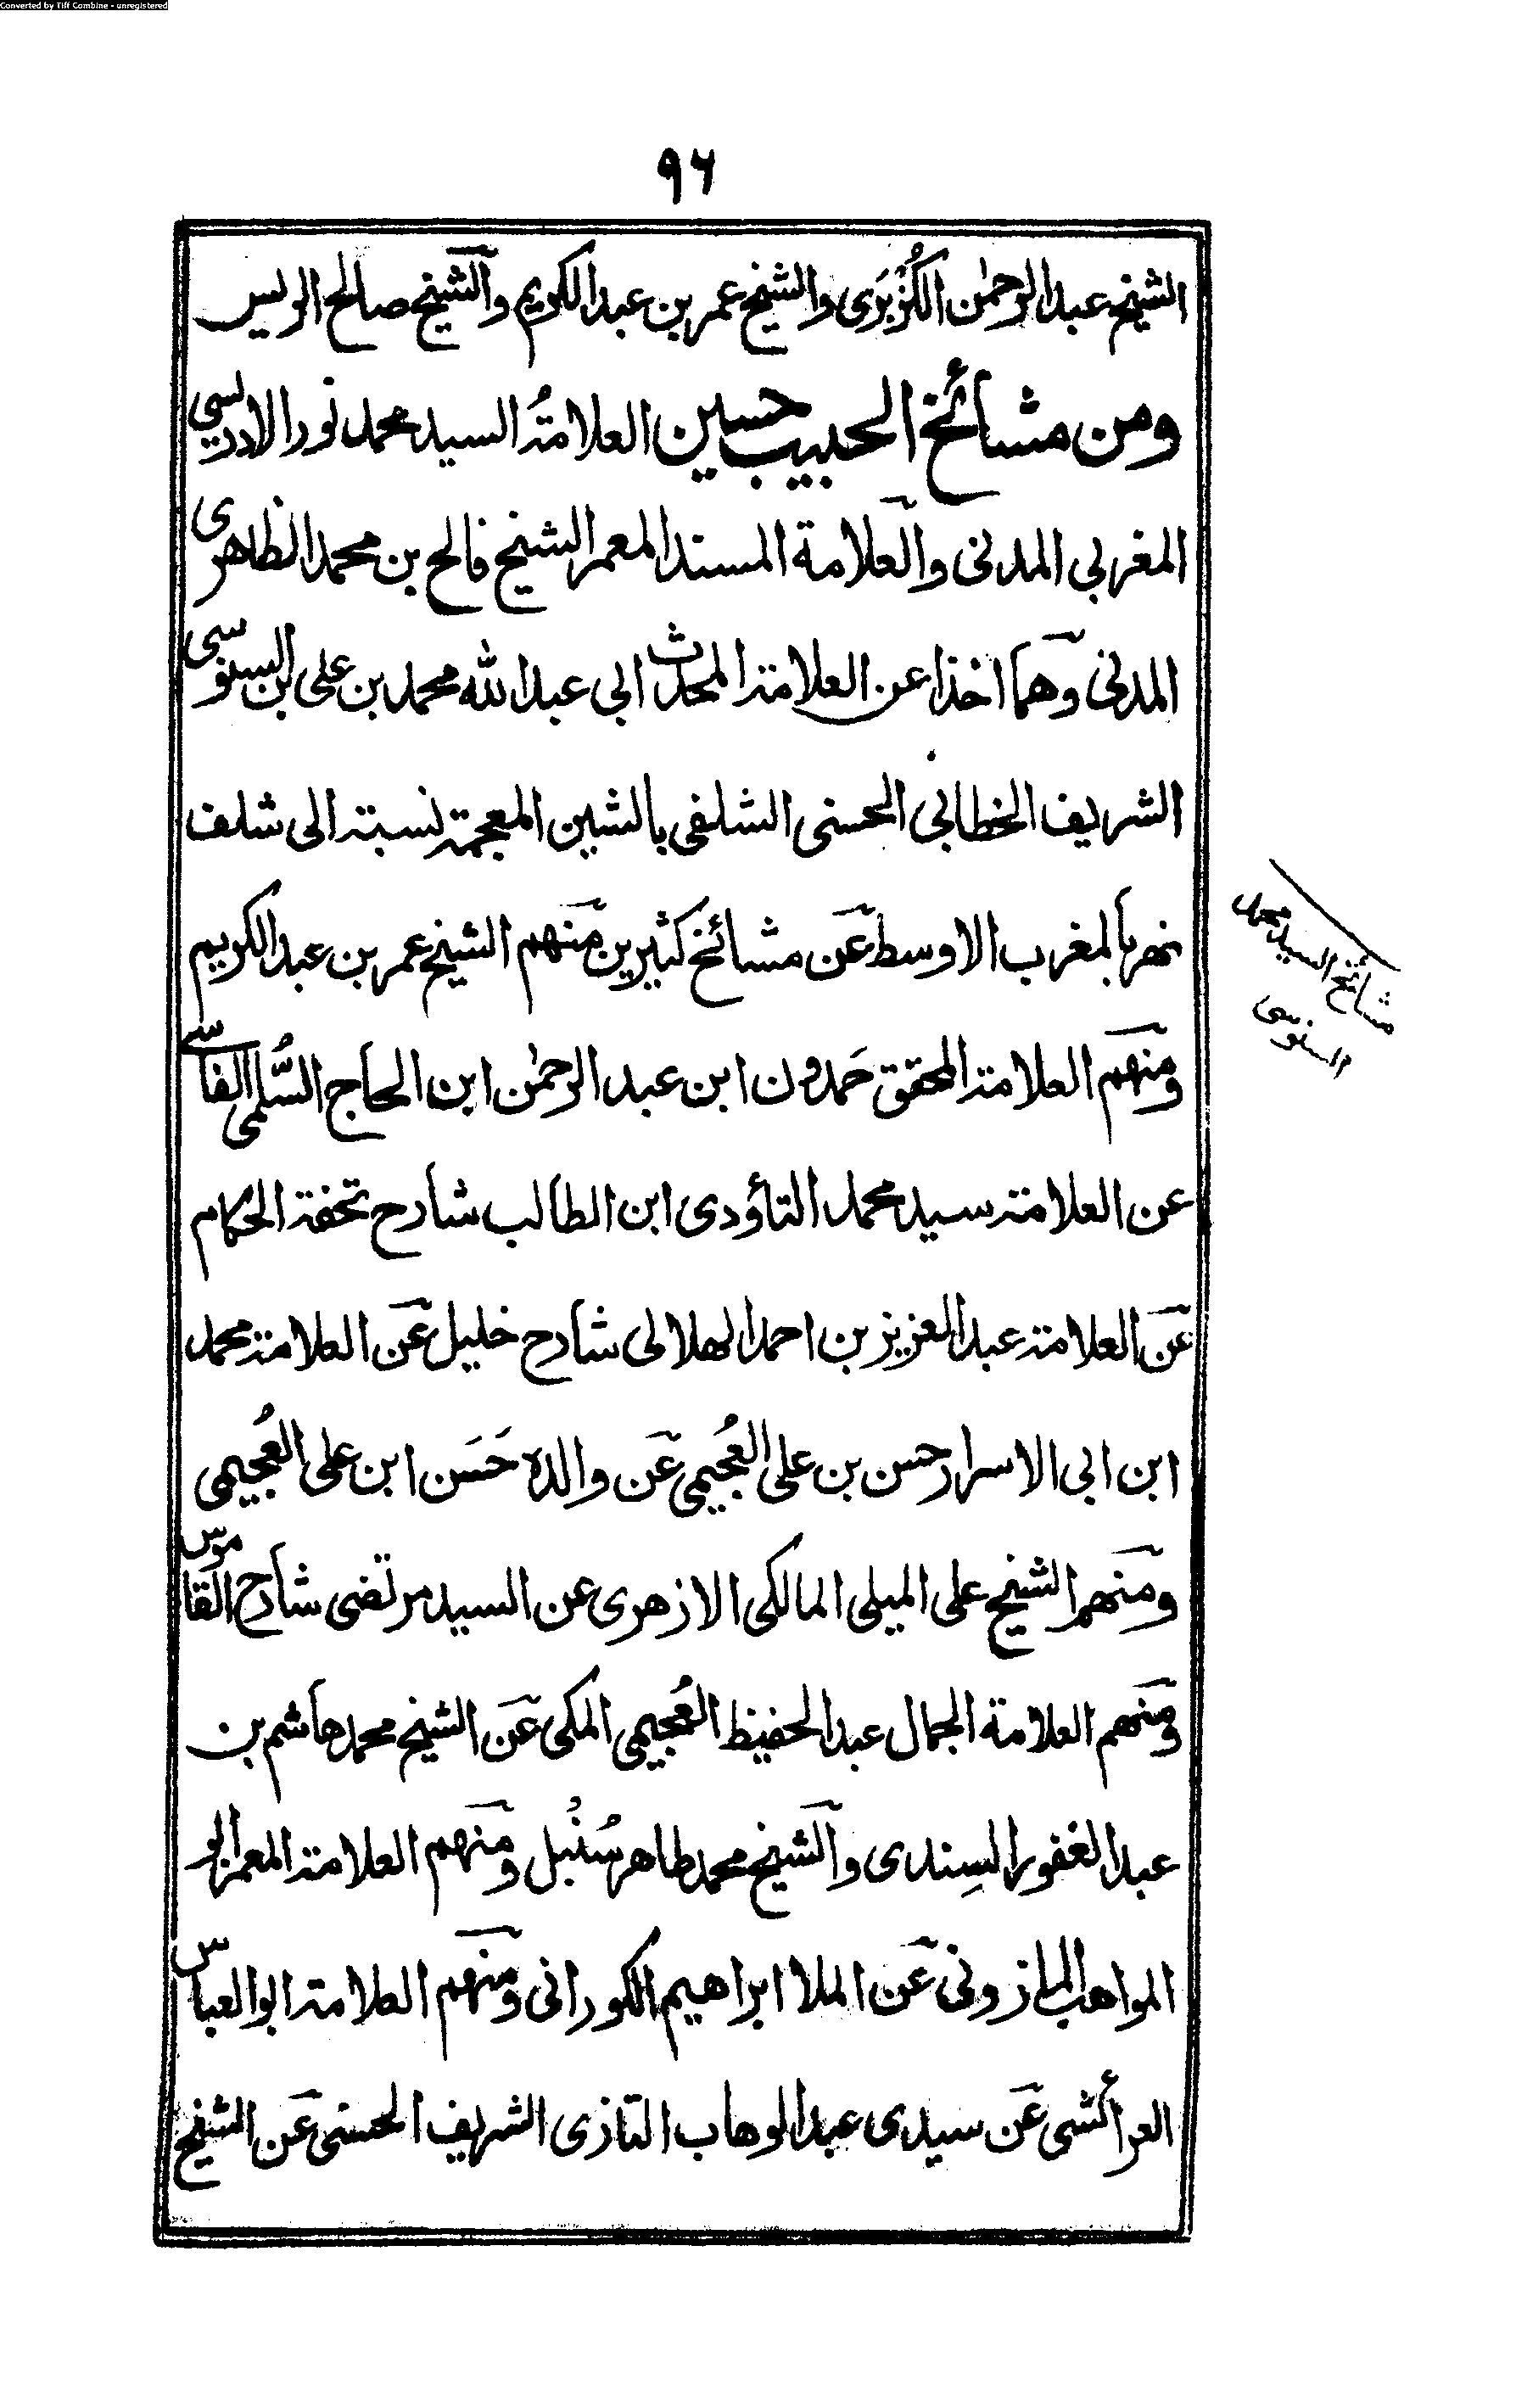 Converted by Tiff Combine - unregistered
٩٦
الشيخ عبدالرحمٰن الكُزْبَرى والشيخ عمر بن عبدالكريم والشيخ صالح الريس
ومن مشائخ الحبيب حسين العلامةُ السيد محمد نور الادريسي
المغربي المدنى والعلامة المسند المعمر الشيخ فالح بن محمد الظاهرى
المدنى وهما اخذا عن العلامة المحدث ابي عبدالله محمد بن على ابن السنوسى
الشريف الخطابي الحسنى الشلفى بالشين المعجمة نسبة الى شلف
نهر بالمغرب الاوسط عن مشائخ كثيرين منهم الشيخ عمر بن عبدالكريم
ومنهم العلامة المحقق حَمدون ابن عبدالرحمٰن ابن الحاج السُّلمى الفاسى
عن العلامة سيد محمد التاؤدى ابن الطالب شارح تحفة الحكام
عن العلامة عبدالعزيز بن احمد الهلالى شارح خليل عن العلامة محمد
ابن ابى الاسرار حسن بن على العُجيمى عن والده حَسَن ابن على العُجيمى
ومنهم الشيخ على الميلى المالكى الازهرى عن السيد مرتضى شارح القاموس
ومنهم العلامة الجمال عبدالحفيظ العُجيمى المكى عن الشيخ محمد هاشم بن
عبدالغفور السِندى والشيخ محمد طاهر سُنْبل ومنهم العلامة المعمر ابو
المواهب المازونى عن الملا ابراهيم الكورانى ومنهم العلامة ابوالعباس
العرائشى عن سيدى عبدالوهاب التازى الشريف الحسنى عن الشيخ
مشائخ السيد محمد
السنوسى